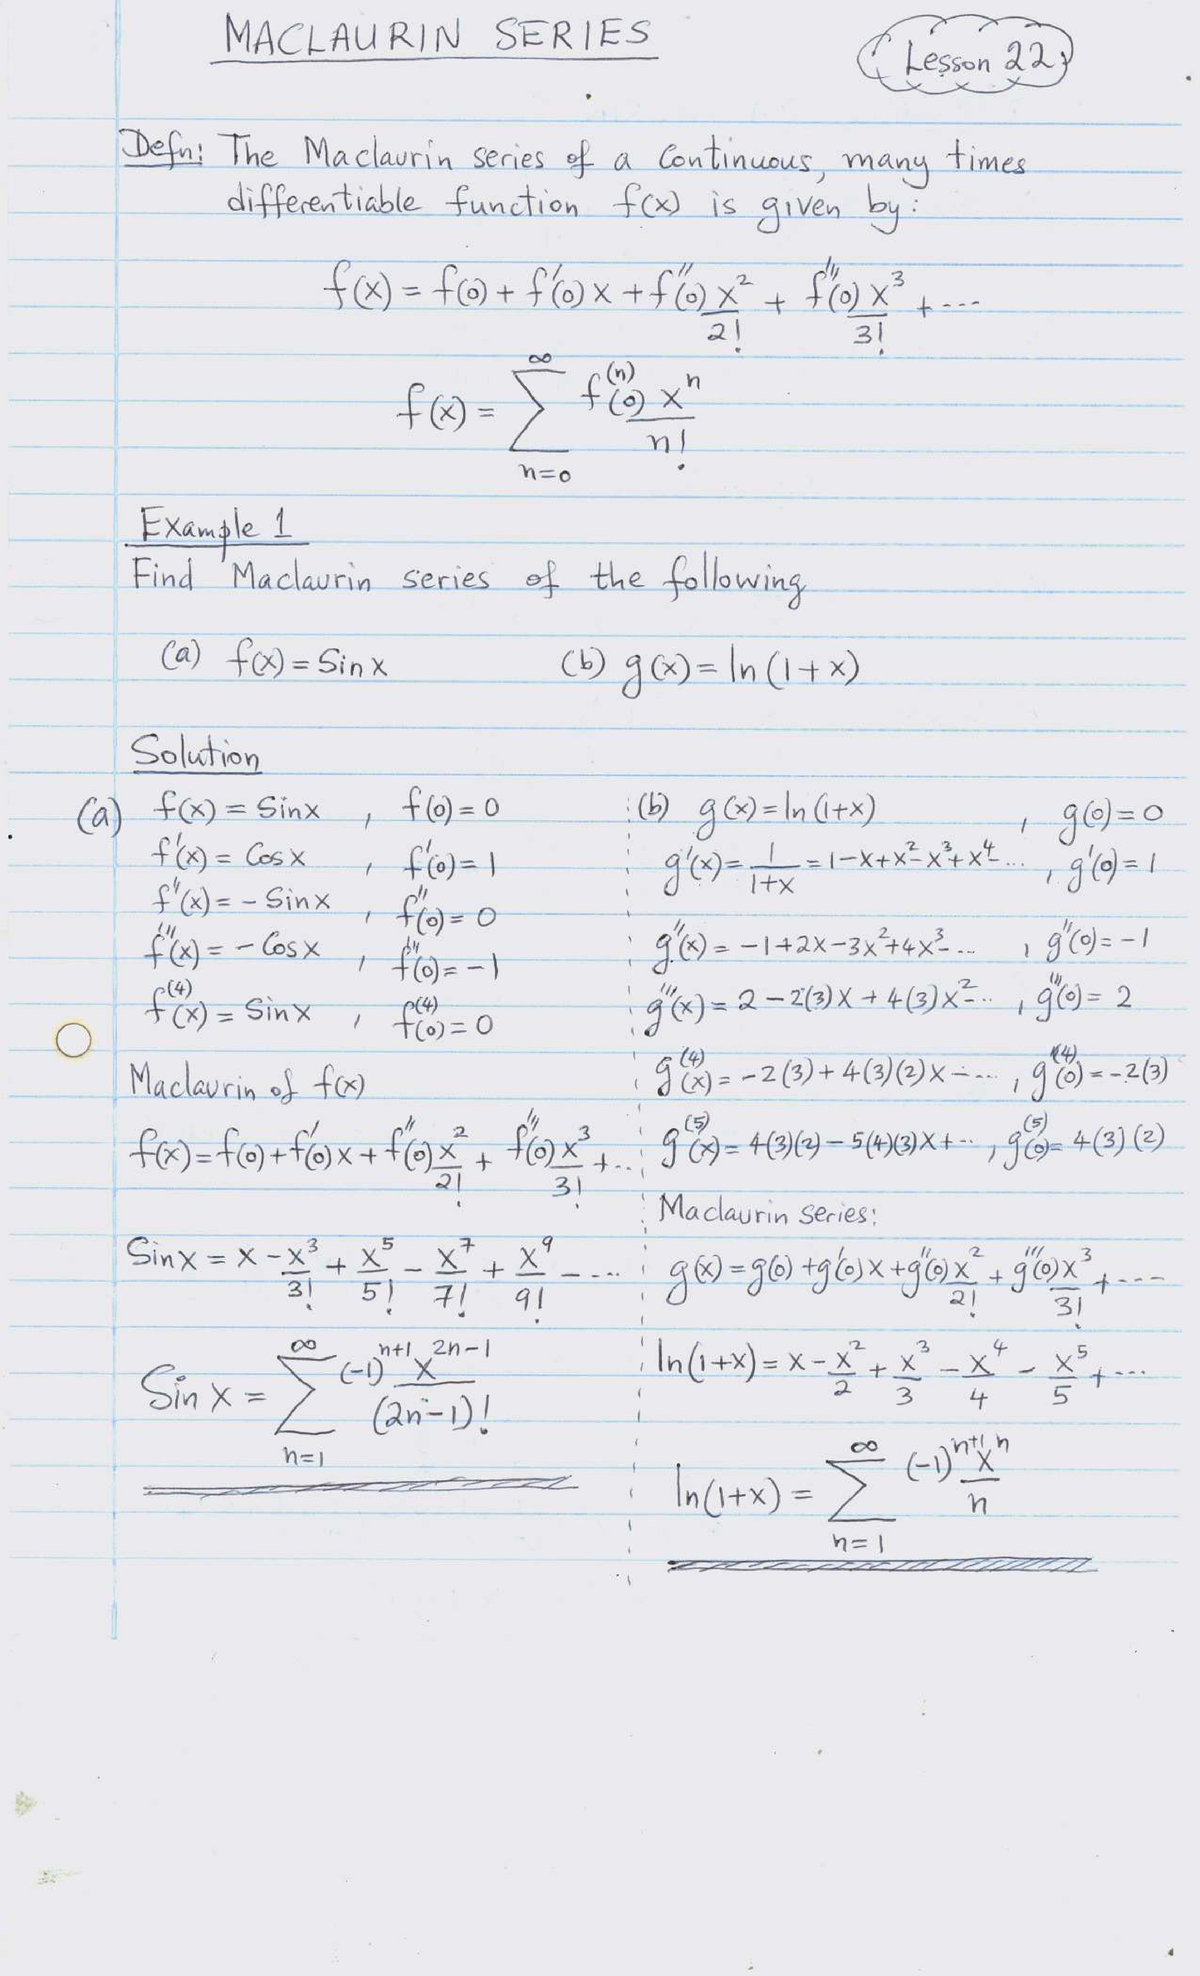 MACLAURIN SERIES
Lesson 22
Defn: The Maclaurin series of a Continuous, many times
differentiable function f(x) is given by:
f(x) = f(0) + f'(0) x + f''(0) x²/2! + f'''(0) x³/3! + ---
f(x) = ∑_{n=0}^{∞} f^{(n)}(0) x^n/n!
Example 1
Find Maclaurin series of the following
(a) f(x) = Sin x (b) g(x) = ln(1+x)
Solution
(a) f(x) = Sinx , f(0) = 0
f'(x) = Cosx , f'(0) = 1
f''(x) = - Sinx , f''(0) = 0
f'''(x) = - Cosx , f'''(0) = -1
f^{(4)}(x) = Sinx , f^{(4)}(0) = 0
Maclaurin of f(x)
f(x) = f(0) + f'(0) x + f''(0) x²/2! + f'''(0) x³/3! + ...
Sinx = x - x³/3! + x⁵/5! - x⁷/7! + x⁹/9! - ....
Sin x = ∑_{n=1}^{∞} (-1)^{n+1} x^{2n-1}/(2n-1)!
(b) g(x) = ln(1+x) , g(0) = 0
g'(x) = 1/(1+x) = 1-x+x²-x³+x⁴-... , g'(0) = 1
g''(x) = -1+2x-3x²+4x³-... , g''(0) = -1
g'''(x) = 2 - 2(3)x + 4(3)x²-.. , g'''(0) = 2
g^{(4)}(x) = -2(3) + 4(3)(2)x - ... , g^{(4)}(0) = -2(3)
g^{(5)}(x) = 4(3)(2) - 5(4)(3)x + .. , g^{(5)}(0) = 4(3)(2)
Maclaurin series:
g(x) = g(0) + g'(0) x + g''(0) x²/2! + g'''(0) x³/3! + ----
ln(1+x) = x - x²/2 + x³/3 - x⁴/4 - x⁵/5 + ...
ln(1+x) = ∑_{n=1}^{∞} (-1)^{n+1} x^n/n